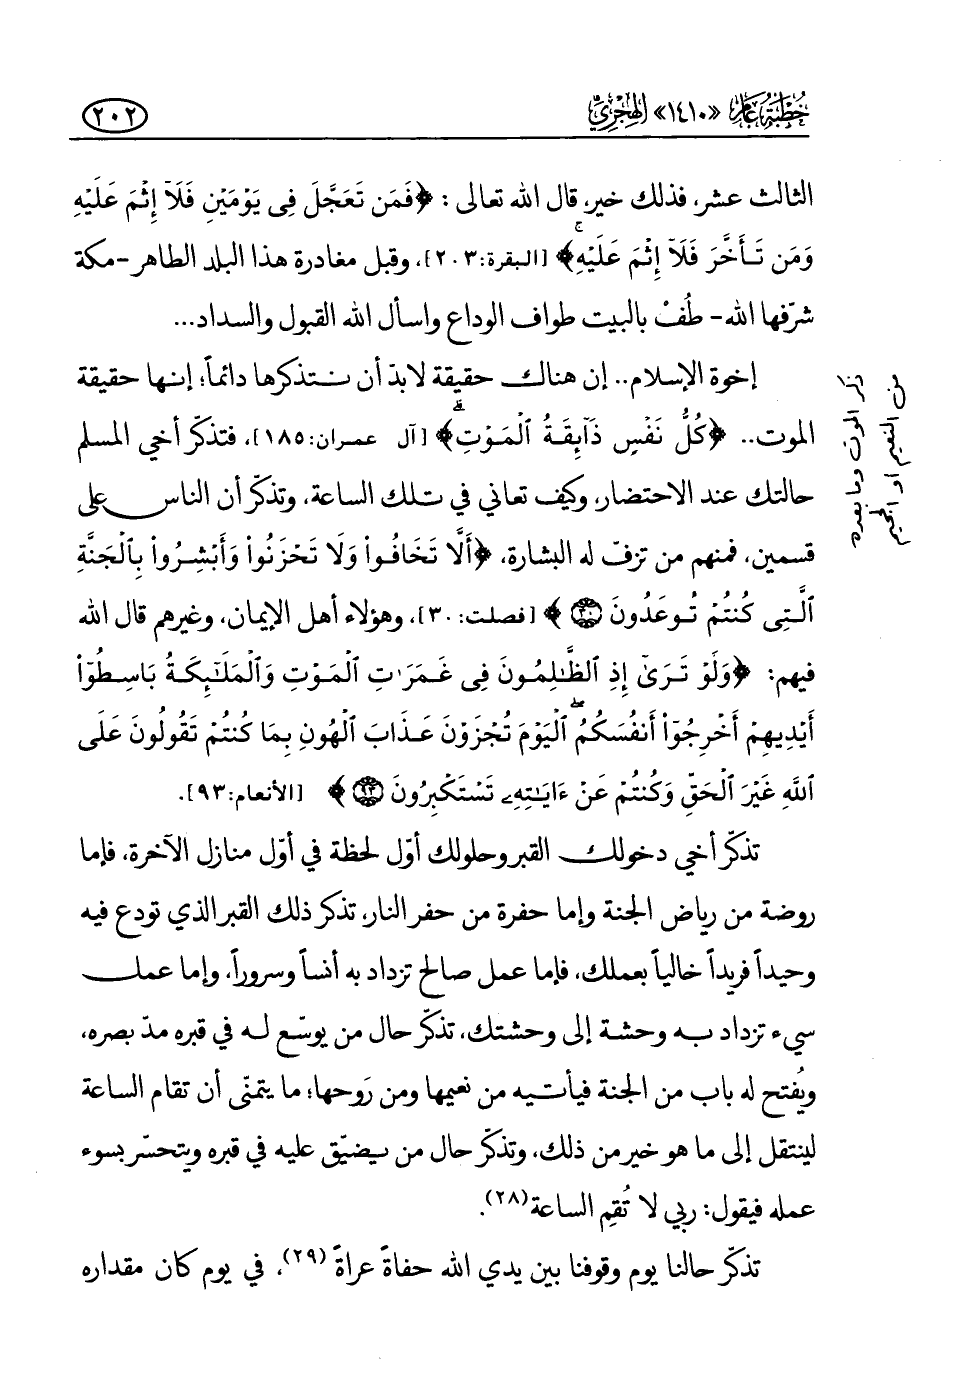 خُطْبَةُ عَام «١٤١٠» الهِجْرِيّ
٢٠٢
الثالث عشر، فذلك خير، قال الله تعالى : ﴿فَمَن تَعَجَّلَ فِى يَوْمَيْنِ فَلَآ إِثْمَ عَلَيْهِ
وَمَن تَأَخَّرَ فَلَآ إِثْمَ عَلَيْهِۚ﴾ [البقرة:٢٠٣]، وقبل مغادرة هذا البلد الطاهر -مكة
شرّفها الله- طُفْ بالبيت طواف الوداع واسأل الله القبول والسداد...
إخوة الإسلام.. إن هناك حقيقة لابدّ أن نتذكرها دائماً؛ إنها حقيقة
الموت.. ﴿كُلُّ نَفْسٍ ذَآئِقَةُ ٱلْمَوْتِۗ﴾ [آل عمران:١٨٥]، فتذكّر أخي المسلم
حالتك عند الاحتضار، وكيف تعاني في تلك الساعة، وتذكّر أن الناس على
قسمين، فمنهم من تزفّ له البشارة، ﴿أَلَّا تَخَافُوا۟ وَلَا تَحْزَنُوا۟ وَأَبْشِرُوا۟ بِٱلْجَنَّةِ
ٱلَّتِى كُنتُمْ تُوعَدُونَ ۝٣٠﴾ [فصلت:٣٠]، وهؤلاء أهل الإيمان، وغيرهم قال الله
فيهم: ﴿وَلَوْ تَرَىٰٓ إِذِ ٱلظَّٰلِمُونَ فِى غَمَرَٰتِ ٱلْمَوْتِ وَٱلْمَلَٰٓئِكَةُ بَاسِطُوٓا۟
أَيْدِيهِمْ أَخْرِجُوٓا۟ أَنفُسَكُمُۖ ٱلْيَوْمَ تُجْزَوْنَ عَذَابَ ٱلْهُونِ بِمَا كُنتُمْ تَقُولُونَ عَلَى
ٱللَّهِ غَيْرَ ٱلْحَقِّ وَكُنتُمْ عَنْ ءَايَٰتِهِۦ تَسْتَكْبِرُونَ ۝٩٣﴾ [الأنعام:٩٣].
تذكّر أخي دخولك القبر وحلولك أوّل لحظة في أوّل منازل الآخرة، فإما
روضة من رياض الجنة وإما حفرة من حفر النار، تذكر ذلك القبر الذي تودع فيه
وحيداً فريداً خالياً بعملك، فإما عمل صالح تزداد به أنساً وسروراً، وإما عمل
سيء تزداد به وحشة إلى وحشتك، تذكّر حال من يوسّع له في قبره مدّ بصره،
ويُفتح له باب من الجنة فيأتيه من نعيمها ومن رَوحها؛ ما يتمنّى أن تقام الساعة
لينتقل إلى ما هو خير من ذلك، وتذكّر حال من يضيّق عليه في قبره ويتحسّر بسوء
عمله فيقول: ربي لا تُقِم الساعة(٢٨).
تذكّر حالنا يوم وقوفنا بين يدي الله حفاةً عراةً (٢٩)، في يوم كان مقداره
ذكر الموت وما بعده
من النعيم أو الجحيم